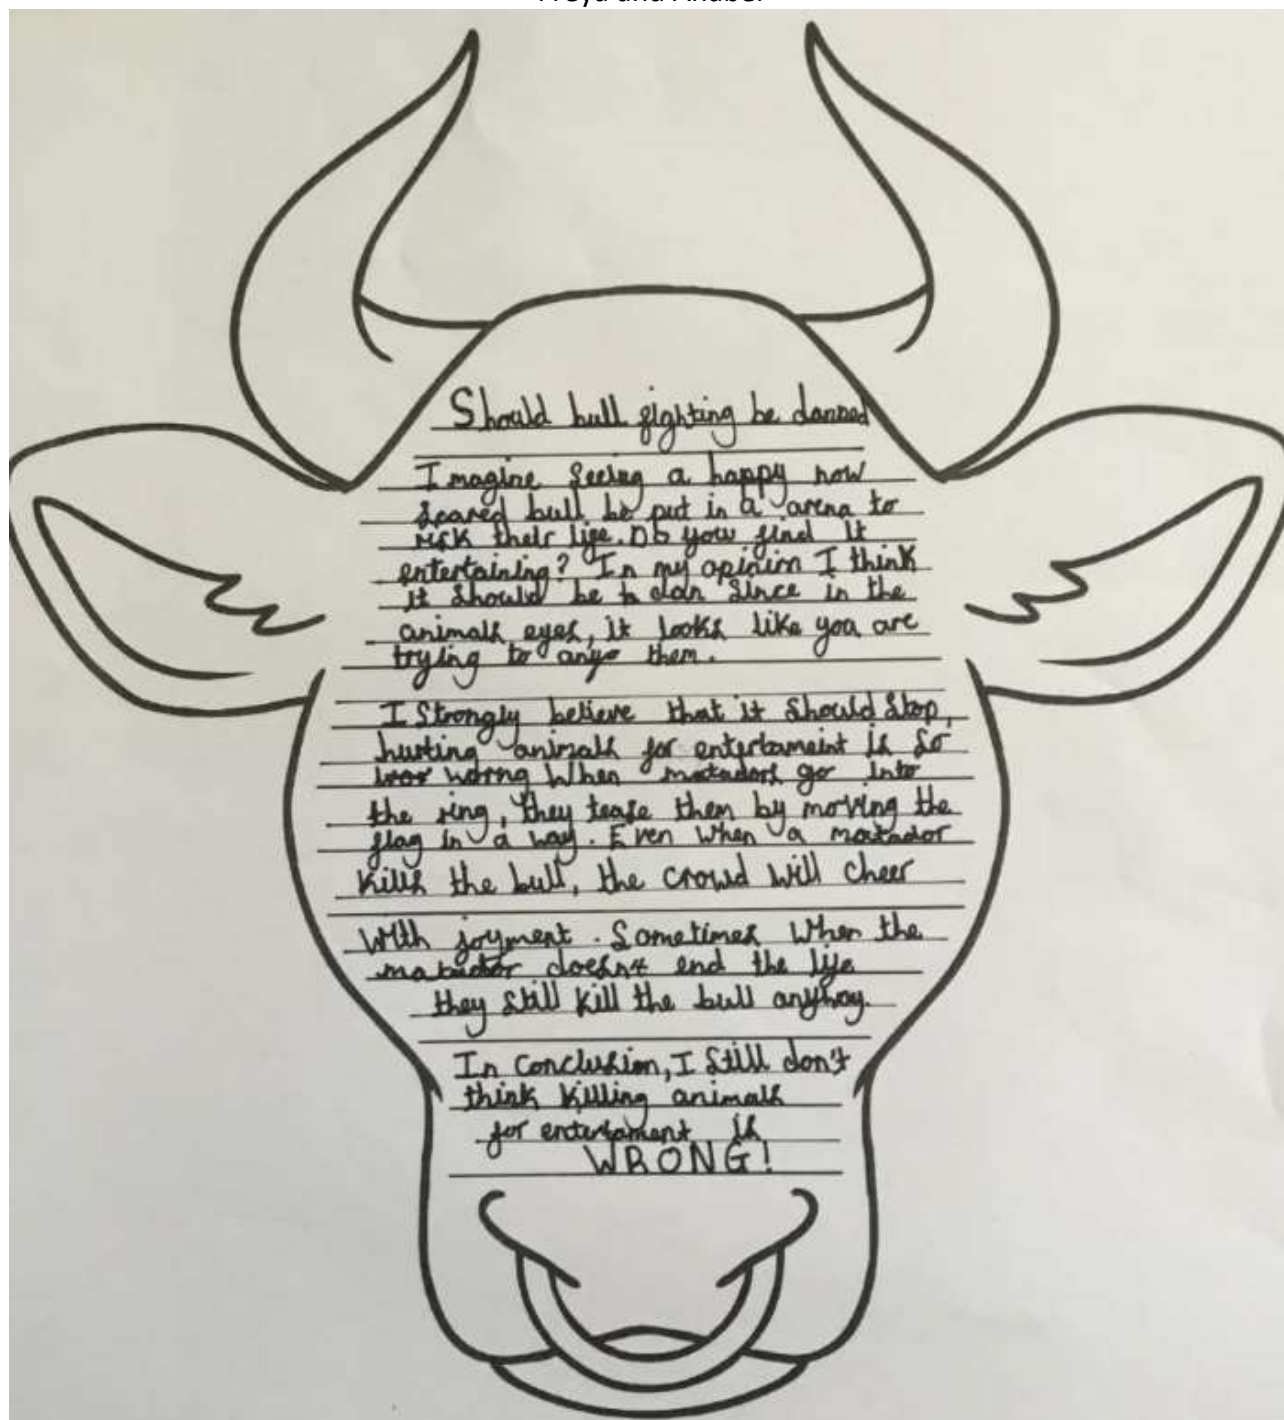 Should bull fighting be danned
Imagine seeing a happy now
scared bull be put in a arena to
risk their life. Do you find it
entertaining? In my opinion I think
it should be b dan since in the
animals eyes, it looks like you are
trying to anyo them.
I Strongly believe that it should stop,
hurting animals for entertameint is so
worng When matadors go into
the ring, they tease them by moving the
flag in a way. Even when a matador
kills the bull, the crowd will cheer
With joyment. Sometimes when the
matador doesn't end the life
they still kill the bull anyhoy.
In conclusion, I still don't
think killing animals
for entertament is
WRONG!